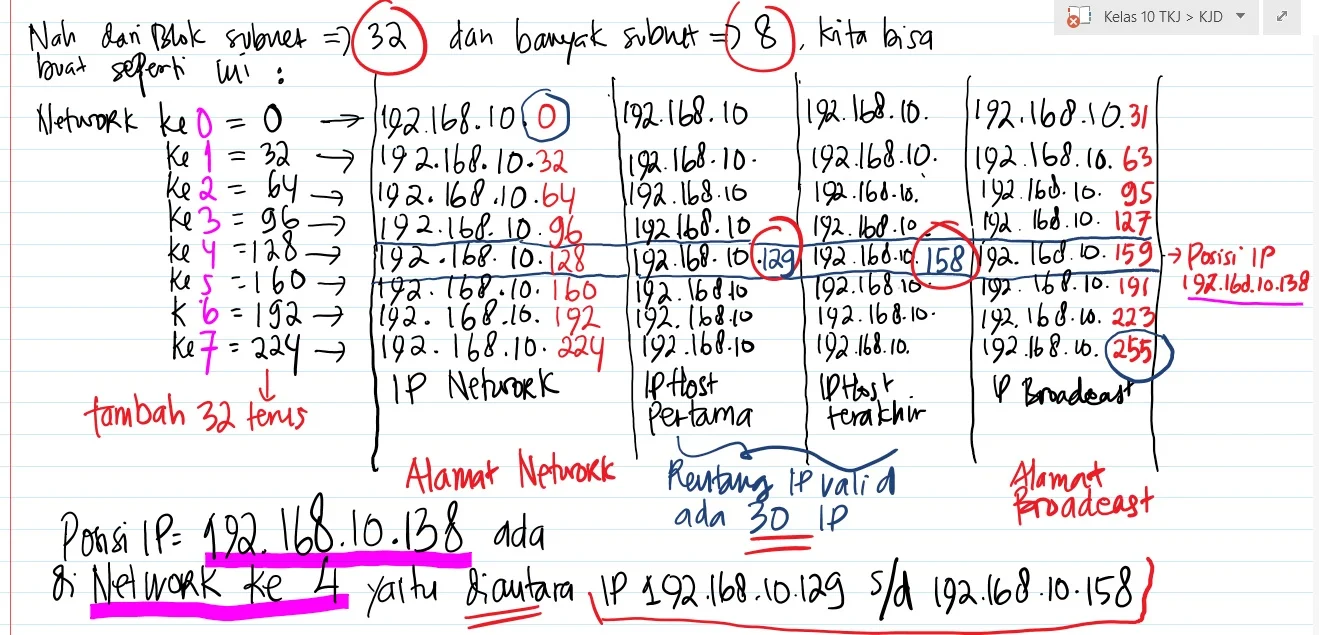 Kelas 10 TKJ > KJD
Nah dari Blok subnet => 32 dan banyak subnet => 8, kita bisa
buat seperti ini :
Network ke 0 = 0 → 192.168.10.0 192.168.10 192.168.10. 192.168.10.31
ke 1 = 32 → 192.168.10.32 192.168.10. 192.168.10. 192.168.10.63
ke 2 = 64 → 192.168.10.64 192.168.10 192.168.10. 192.168.10.95
ke 3 = 96 → 192.168.10.96 192.168.10 192.168.10. 192.168.10.127
ke 4 = 128 → 192.168.10.128 192.168.10.129 192.168.10.158 192.168.10.159 → Posisi IP
ke 5 = 160 → 192.168.10.160 192.168.10 192.168.10. 192.168.10.191 192.168.10.138
k 6 = 192 → 192.168.10.192 192.168.10 192.168.10. 192.168.10.223
ke 7 = 224 → 192.168.10.224 192.168.10 192.168.10. 192.168.10.255
IP Network IP Host IP Host IP Broadcast
Pertama terakhir
tambah 32 terus
Alamat Network Rentang IP valid Alamat
ada 30 IP Broadcast
Posisi IP = 192.168.10.138 ada
di Network ke 4 yaitu diantara IP 192.168.10.129 s/d 192.168.10.158